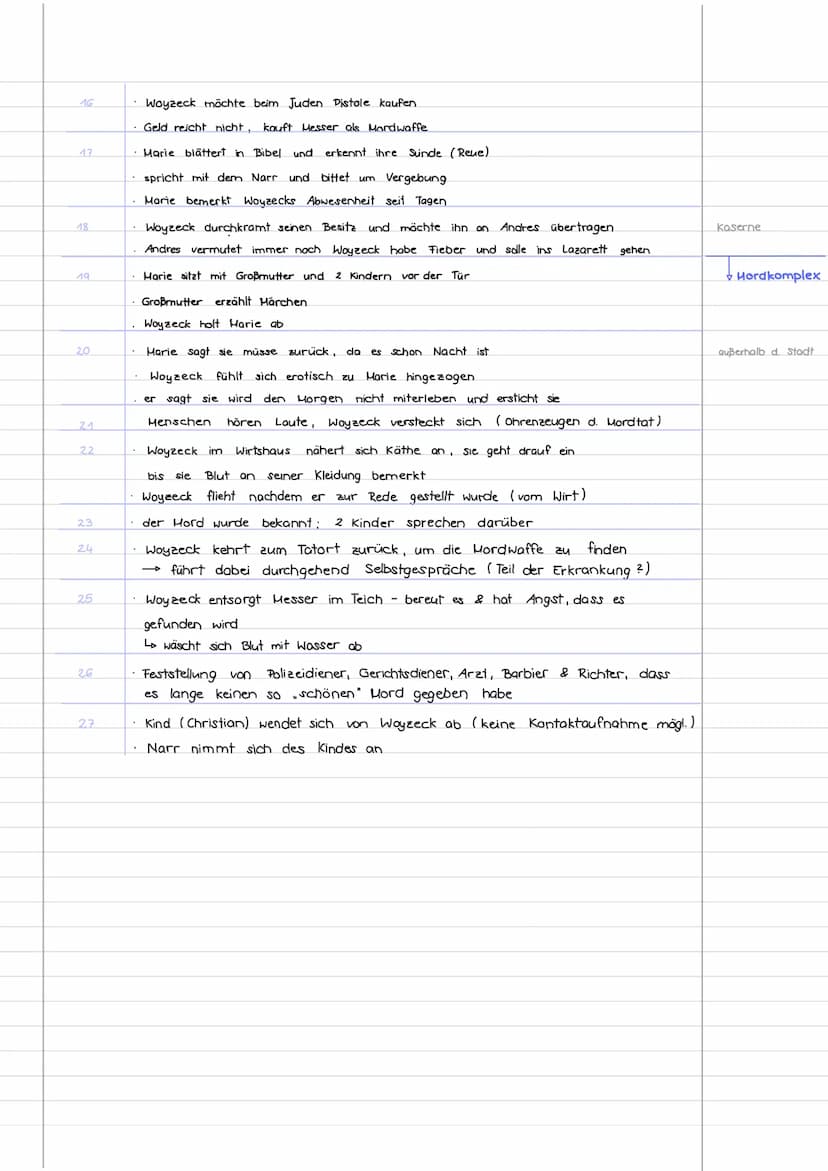 16 · Woyzeck möchte beim Juden Pistole kaufen
· Geld reicht nicht, kauft Messer als Mordwaffe
17 · Marie blättert in Bibel und erkennt ihre Sünde (Reue)
· spricht mit dem Narr und bittet um Vergebung
· Marie bemerkt Woyzecks Abwesenheit seit Tagen
18 · Woyzeck durchkramt seinen Besitz und möchte ihn an Andres übertragen Kaserne
· Andres vermutet immer noch Woyzeck habe Fieber und solle ins Lazarett gehen
19 · Marie sitzt mit Großmutter und 2 Kindern vor der Tür ↳ Mordkomplex
· Großmutter erzählt Märchen
· Woyzeck holt Marie ab
20 · Marie sagt sie müsse zurück, da es schon Nacht ist außerhalb d. Stadt
· Woyzeck fühlt sich erotisch zu Marie hingezogen
· er sagt sie wird den Morgen nicht miterleben und ersticht sie
21 Menschen hören Laute, Woyzeck versteckt sich (Ohrenzeugen d. Mordtat)
22 · Woyzeck im Wirtshaus nähert sich Käthe an, sie geht drauf ein
bis sie Blut an seiner Kleidung bemerkt
· Woyeeck flieht nachdem er zur Rede gestellt wurde (vom Wirt)
23 · der Mord wurde bekannt; 2 Kinder sprechen darüber
24 · Woyzeck kehrt zum Tatort zurück, um die Mordwaffe zu finden
→ führt dabei durchgehend Selbstgespräche (Teil der Erkrankung?)
25 · Woyzeck entsorgt Messer im Teich - bereut es & hat Angst, dass es
gefunden wird
↳ wäscht sich Blut mit Wasser ab
26 · Feststellung von Polizeidiener, Gerichtsdiener, Arzt, Barbier & Richter, dass
es lange keinen so „schönen" Mord gegeben habe
27 · Kind (Christian) wendet sich von Woyzeck ab (keine Kontaktaufnahme mögl.)
· Narr nimmt sich des Kindes an